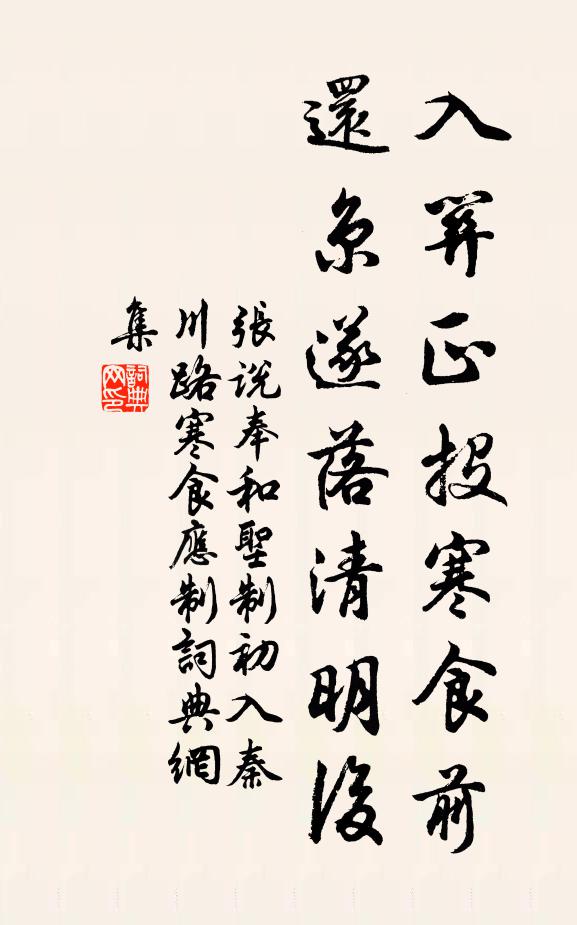 入關正投寒食前
還京遂落清明後
張說奉和聖制初入秦
川路寒食應制詞典網
集
詞典
網印